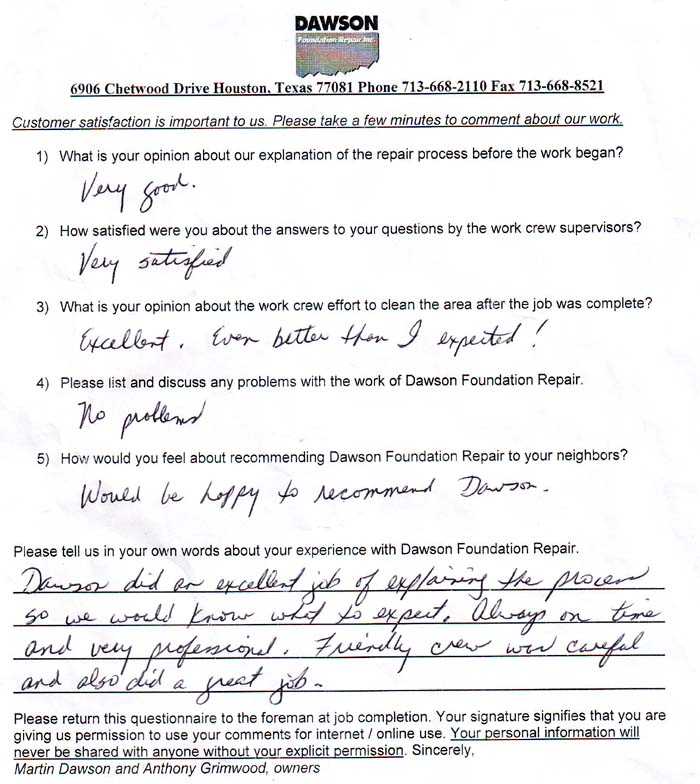 DAWSON
Foundation Repair Inc.
6906 Chetwood Drive Houston, Texas 77081 Phone 713-668-2110 Fax 713-668-8521
Customer satisfaction is important to us. Please take a few minutes to comment about our work.
1) What is your opinion about our explanation of the repair process before the work began?
Very good.
2) How satisfied were you about the answers to your questions by the work crew supervisors?
Very satisfied
3) What is your opinion about the work crew effort to clean the area after the job was complete?
Excellent. Even better than I expected!
4) Please list and discuss any problems with the work of Dawson Foundation Repair.
No problems
5) How would you feel about recommending Dawson Foundation Repair to your neighbors?
Would be happy to recommend Dawson.
Please tell us in your own words about your experience with Dawson Foundation Repair.
Dawson did an excellent job of explaining the process
so we would know what to expect. Always on time
and very professional. Friendly crew was careful
and also did a great job.
Please return this questionnaire to the foreman at job completion. Your signature signifies that you are
giving us permission to use your comments for internet / online use. Your personal information will
never be shared with anyone without your explicit permission. Sincerely,
Martin Dawson and Anthony Grimwood, owners